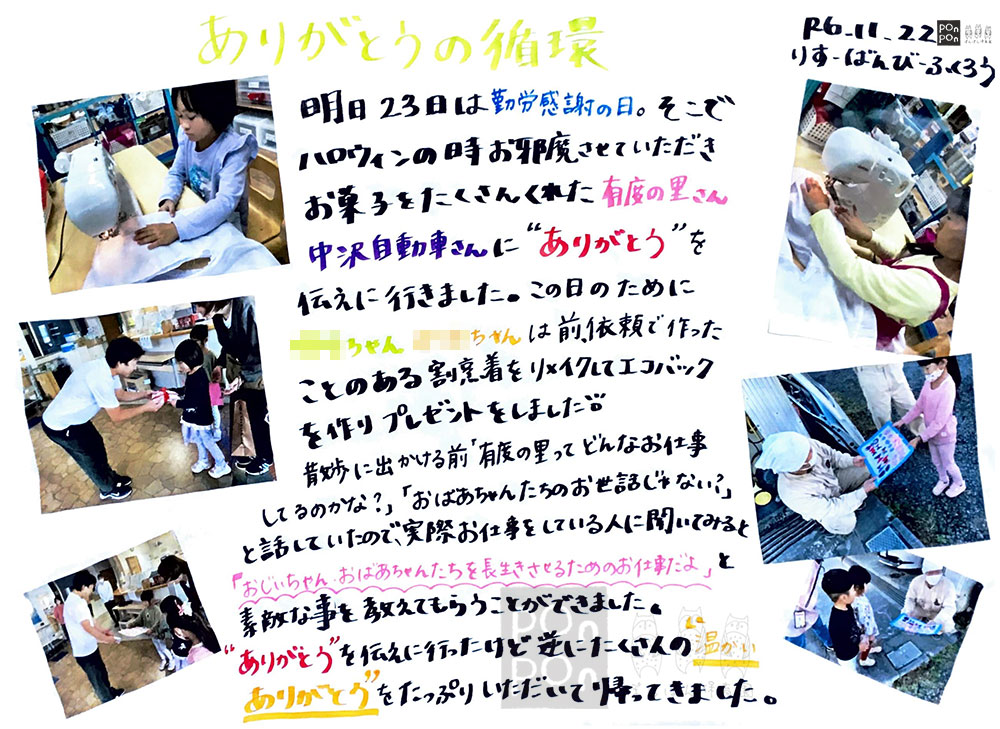 ありがとうの循環
R6.11.22
りすーばんびーふくろう
pon pon
明日23日は勤労感謝の日。そこで
ハロウィンの時お邪魔させていただき
お菓子をたくさんくれた有度の里さん
中沢自動車さんに"ありがとう"を
伝えに行きました。この日のために
ちゃん ちゃんは前、依頼で作った
ことのある割烹着をリメイクしてエコバック
を作りプレゼントをしました
散歩に出かける前「有度の里ってどんなお仕事
してるのかな?」「おばあちゃんたちのお世話じゃない?」
と話していたので、実際お仕事をしている人に聞いてみると
「おじいちゃん、おばあちゃんたちを長生きさせるためのお仕事だよ」と
素敵な事を教えてもらうことができました。
"ありがとう"を伝えに行ったけど逆にたくさんの"温かい
ありがとう"をたっぷりいただいて帰ってきました。
pon pon